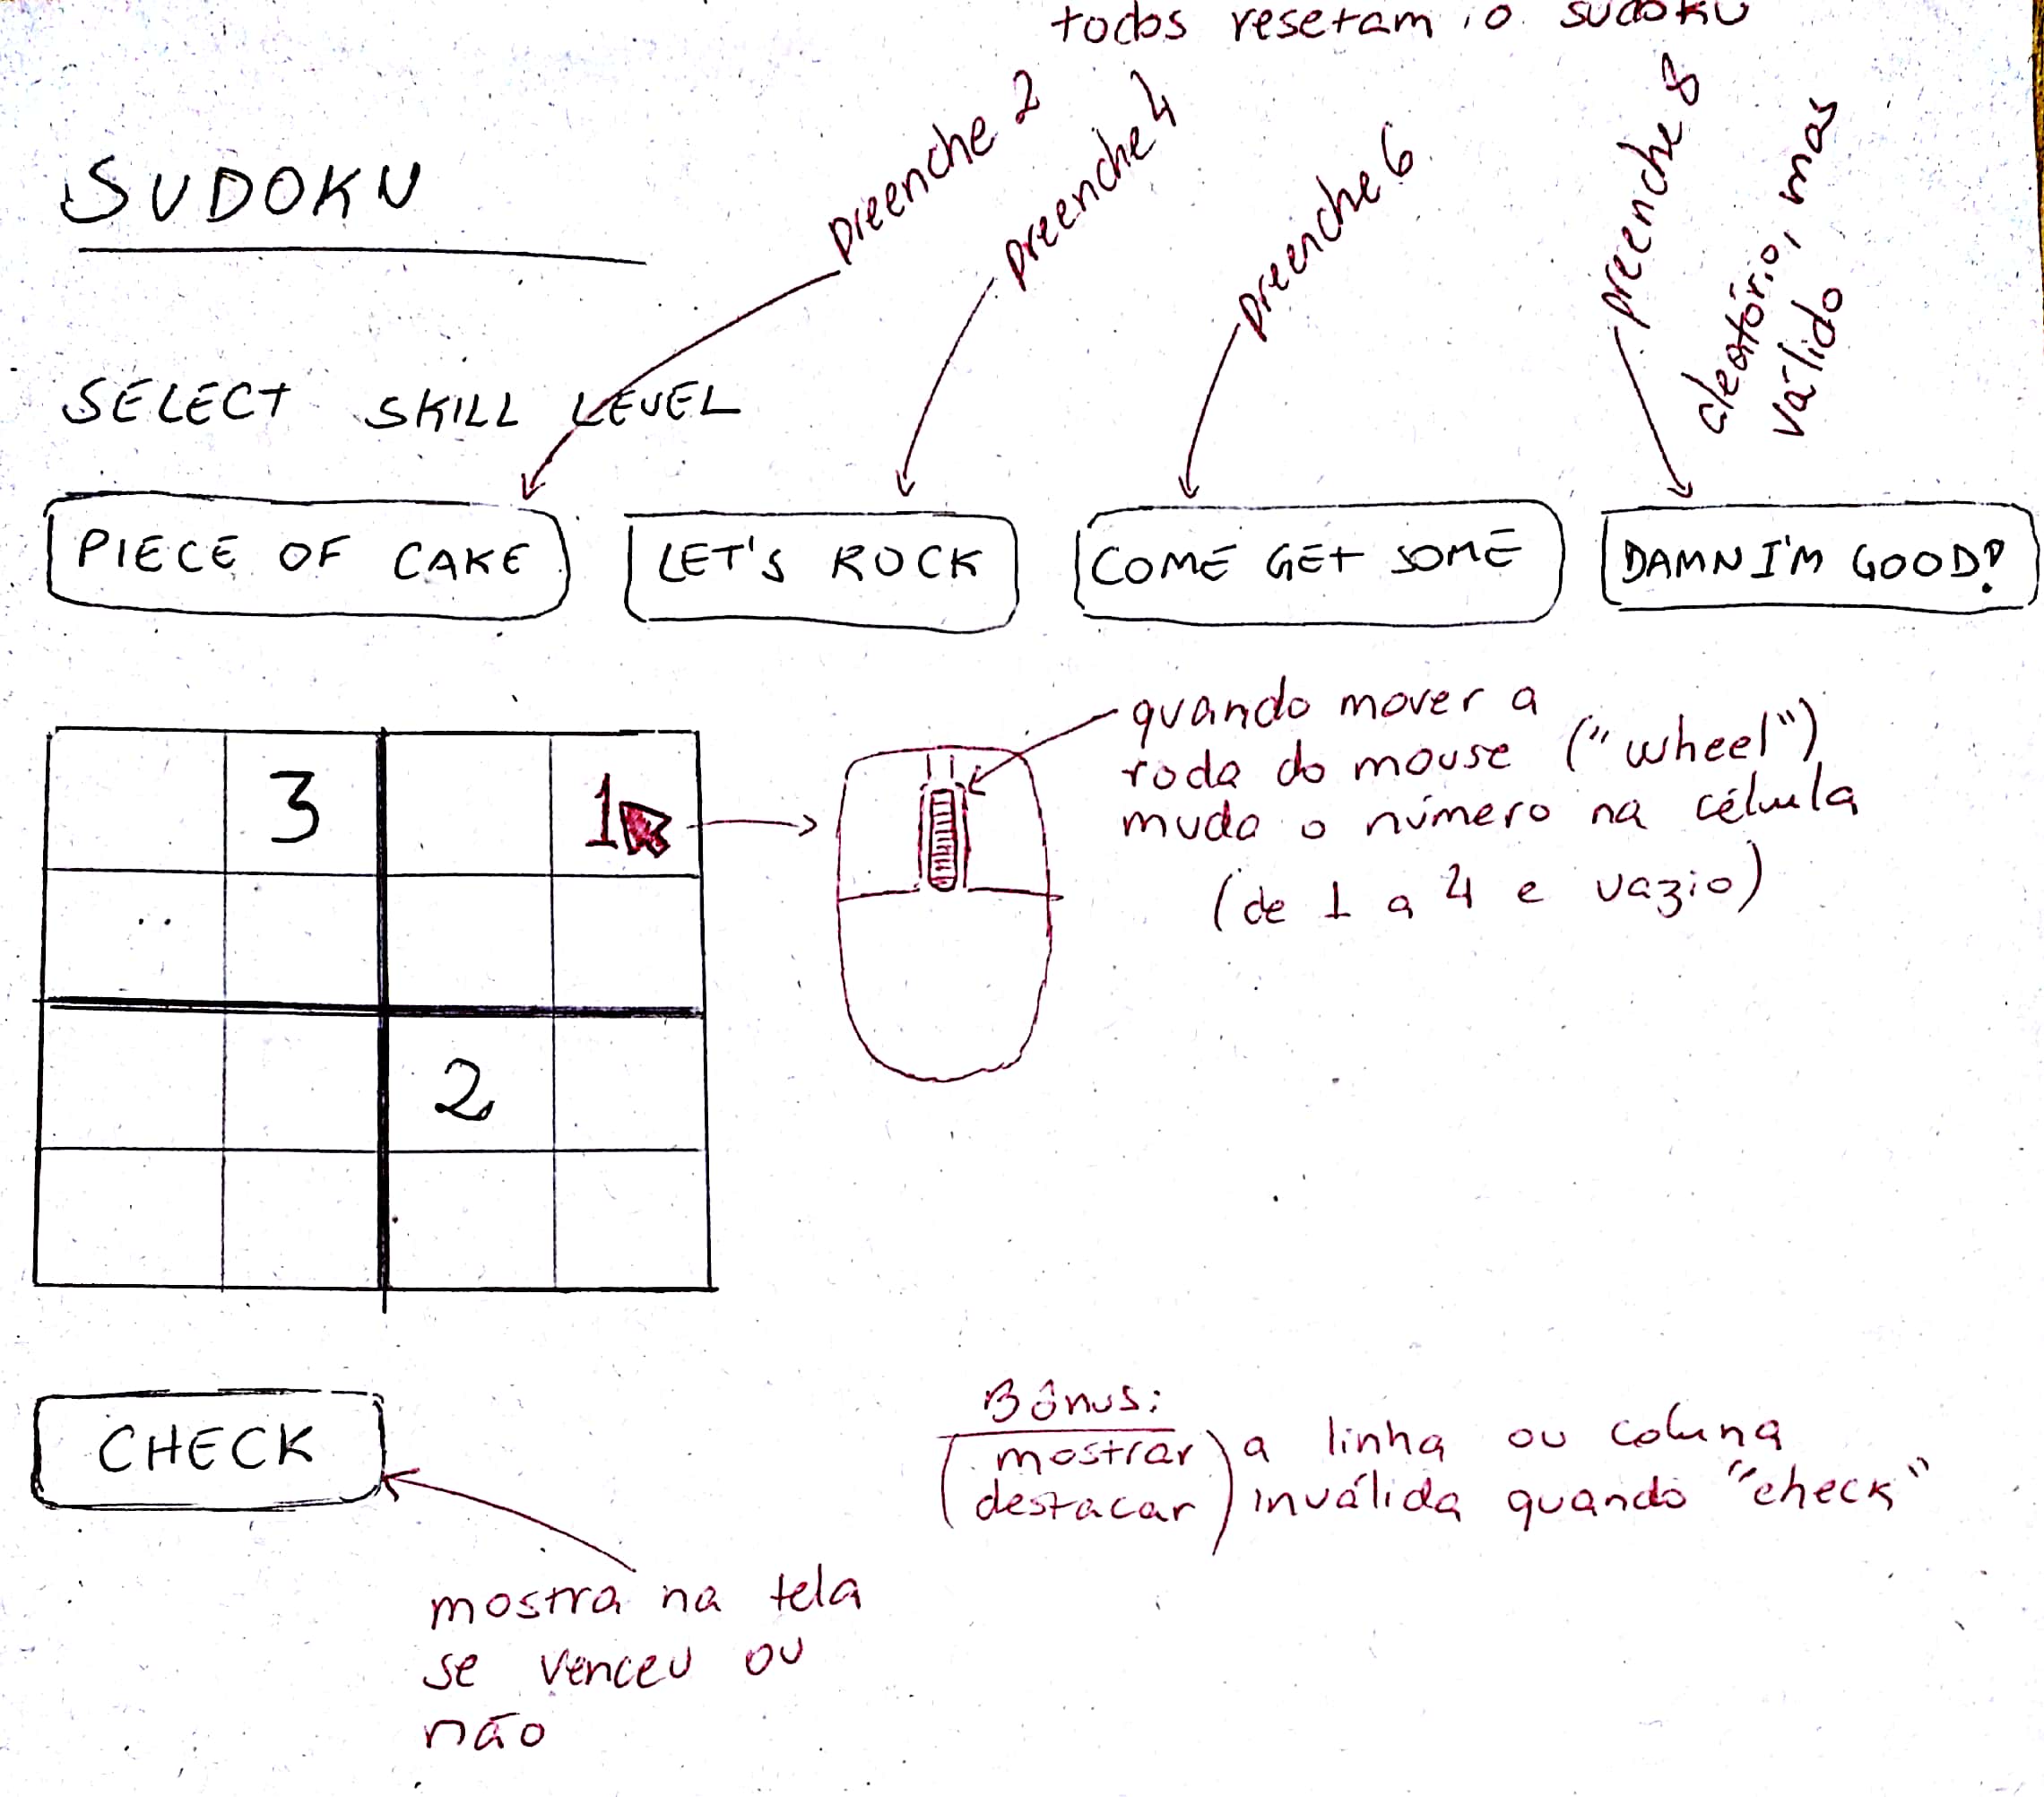 todos resetam o sudoku
SUDOKU
preenche 2
preenche 4
preenche 6
preenche 8
aleatório, mas
válido
SELECT SKILL LEVEL
PIECE OF CAKE
LET'S ROCK
COME GET SOME
DAMN I'M GOOD!
3
1
2
quando mover a
roda do mouse ("wheel")
muda o número na célula
(de 1 a 4 e vazio)
CHECK
mostra na tela
se venceu ou
não
Bônus:
(mostrar
destacar) a linha ou coluna
inválida quando "check"